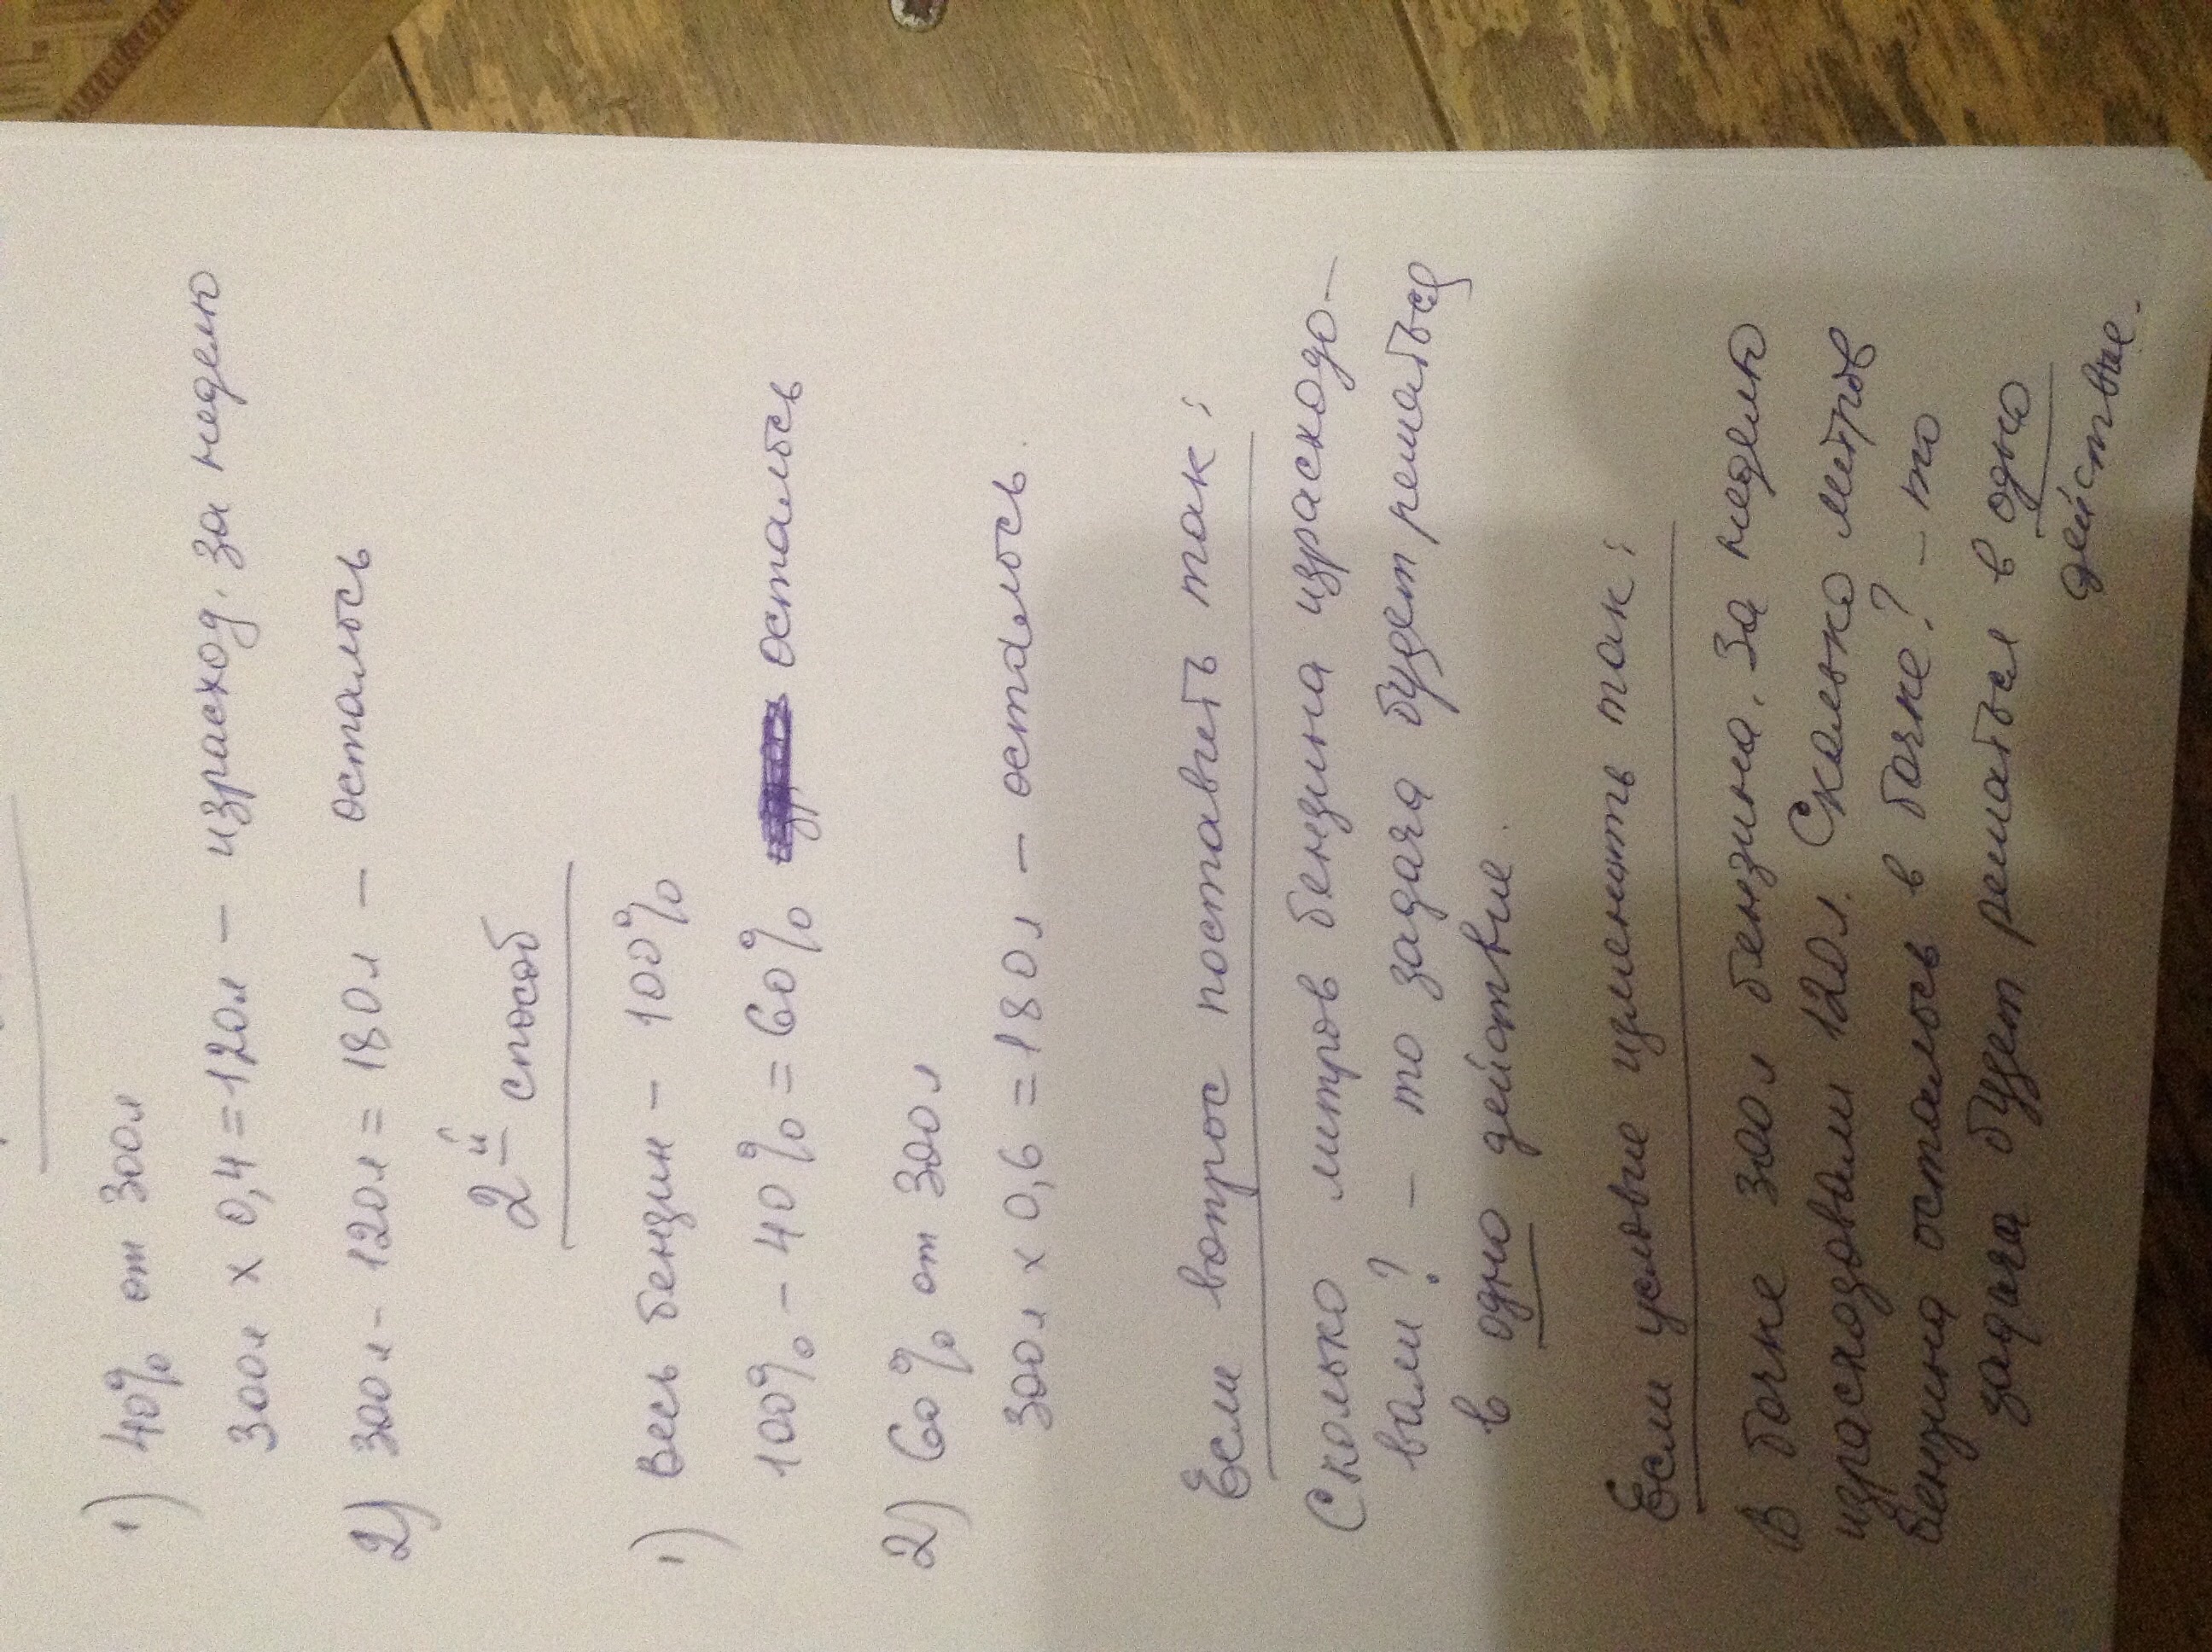 1) 40% от 300л
300л х 0,4 = 120л – израсход. за неделю
2) 300л - 120л = 180л – осталось
2й способ
1) Весь бензин – 100%
100% - 40% = 60% осталось
2) 60% от 300л
300л х 0,6 = 180л – осталось.
Если вопрос поставить так:
Сколько литров бензина израсходо-
вали? – то задача будет решаться
в одно действие.
Если условие изменить так:
В бочке 300л бензина. За неделю
израсходовали 120л. Сколько литров
бензина осталось в бочке? – то
задача будет решаться в одно
действие.